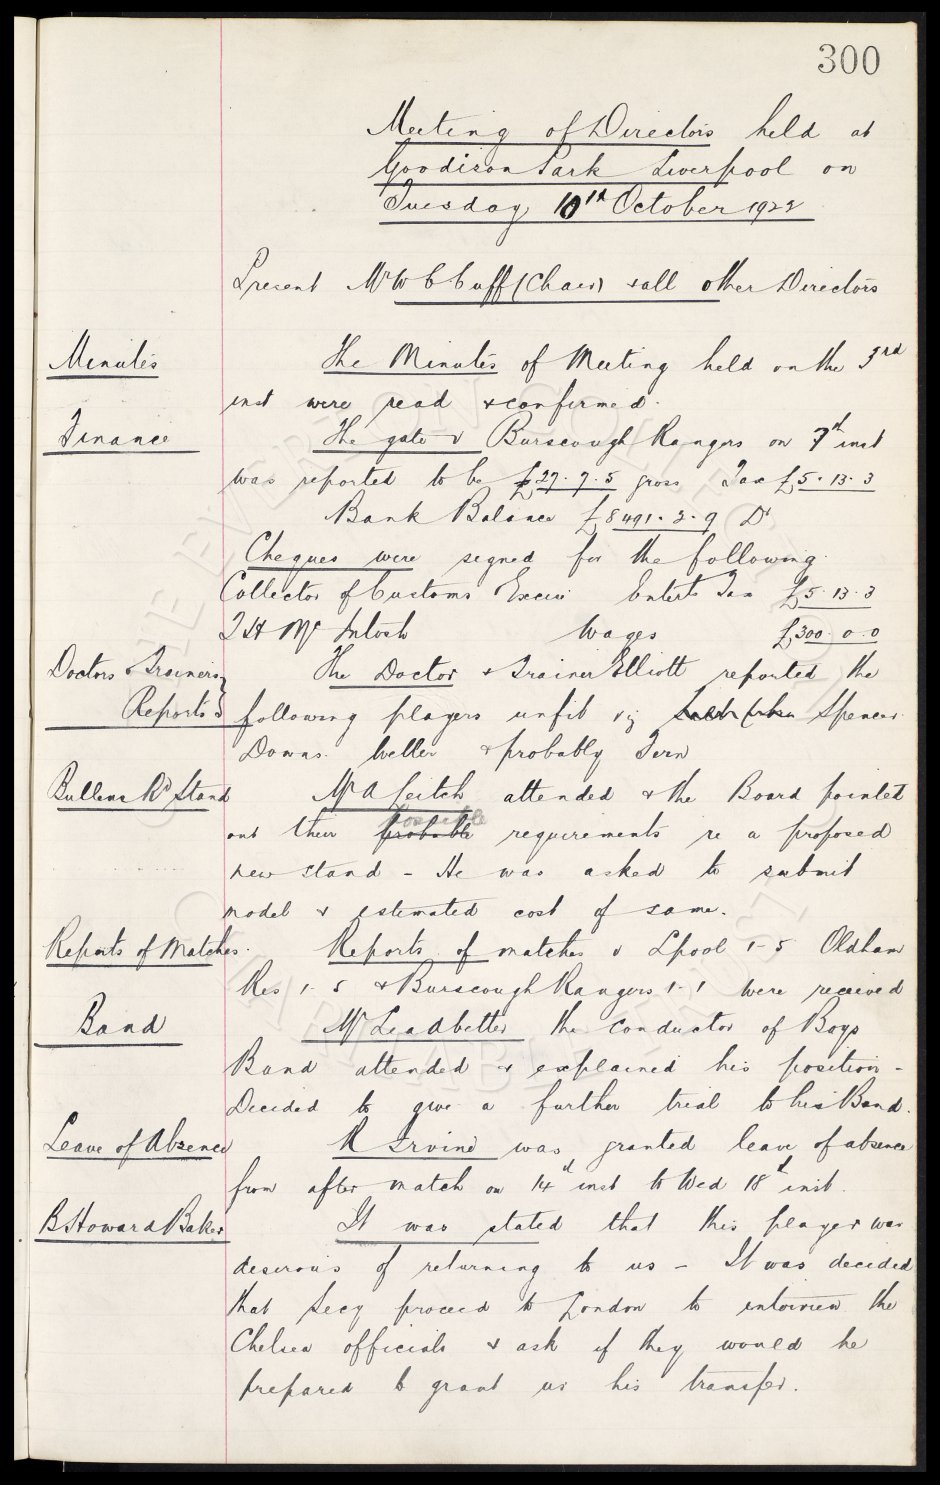 300
Meeting of Directors held at
Goodison Park Liverpool on
Tuesday 10th October 1922
Present Mr W C Cuff (Chair) & all other Directors
Minutes The Minutes of Meeting held on the 3rd
inst were read & confirmed.
Finance The gate v Burscough Rangers on 7th inst
was reported to be £27.7.5 gross Tax £5.13.3
Bank Balance £8491.3.9 Dr
Cheques were signed for the following.
Collector of Customs Excise Enterts Tax £5.13.3
T H McIntosh Wages £300.0.0
Doctors & Trainers The Doctor & Trainer Elliott reported the
Reports following players unfit viz Spencer
Downs Weller & probably Fern
Bullens Rd Stand Mr A Leitch attended & the Board pointed
out their probable possible requirements re a proposed
new stand - He was asked to submit
model & estimated cost of same.
Reports of Matches. Reports of matches v Lpool 1-5 Oldham
Res 1-5 & Burscough Rangers 1-1 were received
Band Mr Leadbetter the conductor of Boys
Band attended & explained his position -
Decided to give a further trial to his Band.
Leave of Absence R Irvine was granted leave of absence
from after match on 14th inst to Wed 18th inst.
B Howard Baker It was stated that this player was
desirous of returning to us - It was decided
that Secy proceed to London to interview the
Chelsea officials & ask if they would be
prepared to grant us his transfer.
THE EVERTON COLLECTION
CHARITABLE TRUST